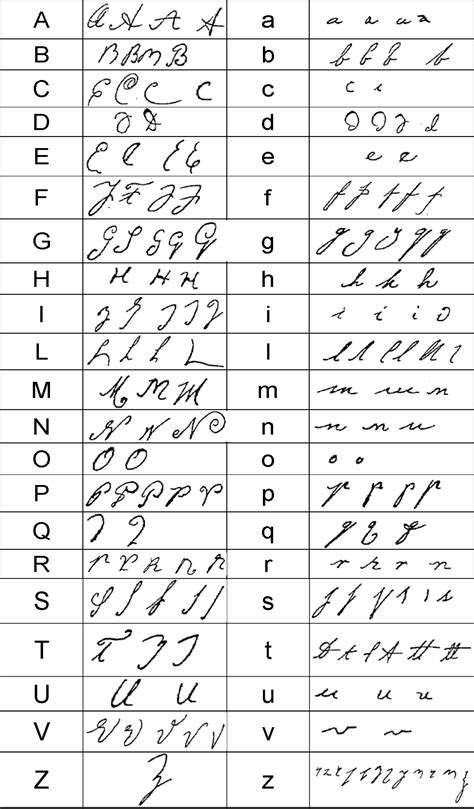 A A A A A a a a a a
B B B B B b b b b b
C C C C C c c c
D D D d d d d d
E E E E E e e e
F F F F F f f f f f f
G G G G G G g g g g g g
H H H H h h h h
I I I I I I i i i i
L L L L L l l l l l l
M M M M m m m m
N N N N n n n n
O O O o o o
P P P P P P p p p p p
Q Q Q q q q q
R R R R R R r r r r r
S S S S S S s s s s s s s
T T T T t t t t t t t
U U U u u u u
V V V V V V v v v
Z Z z z z z